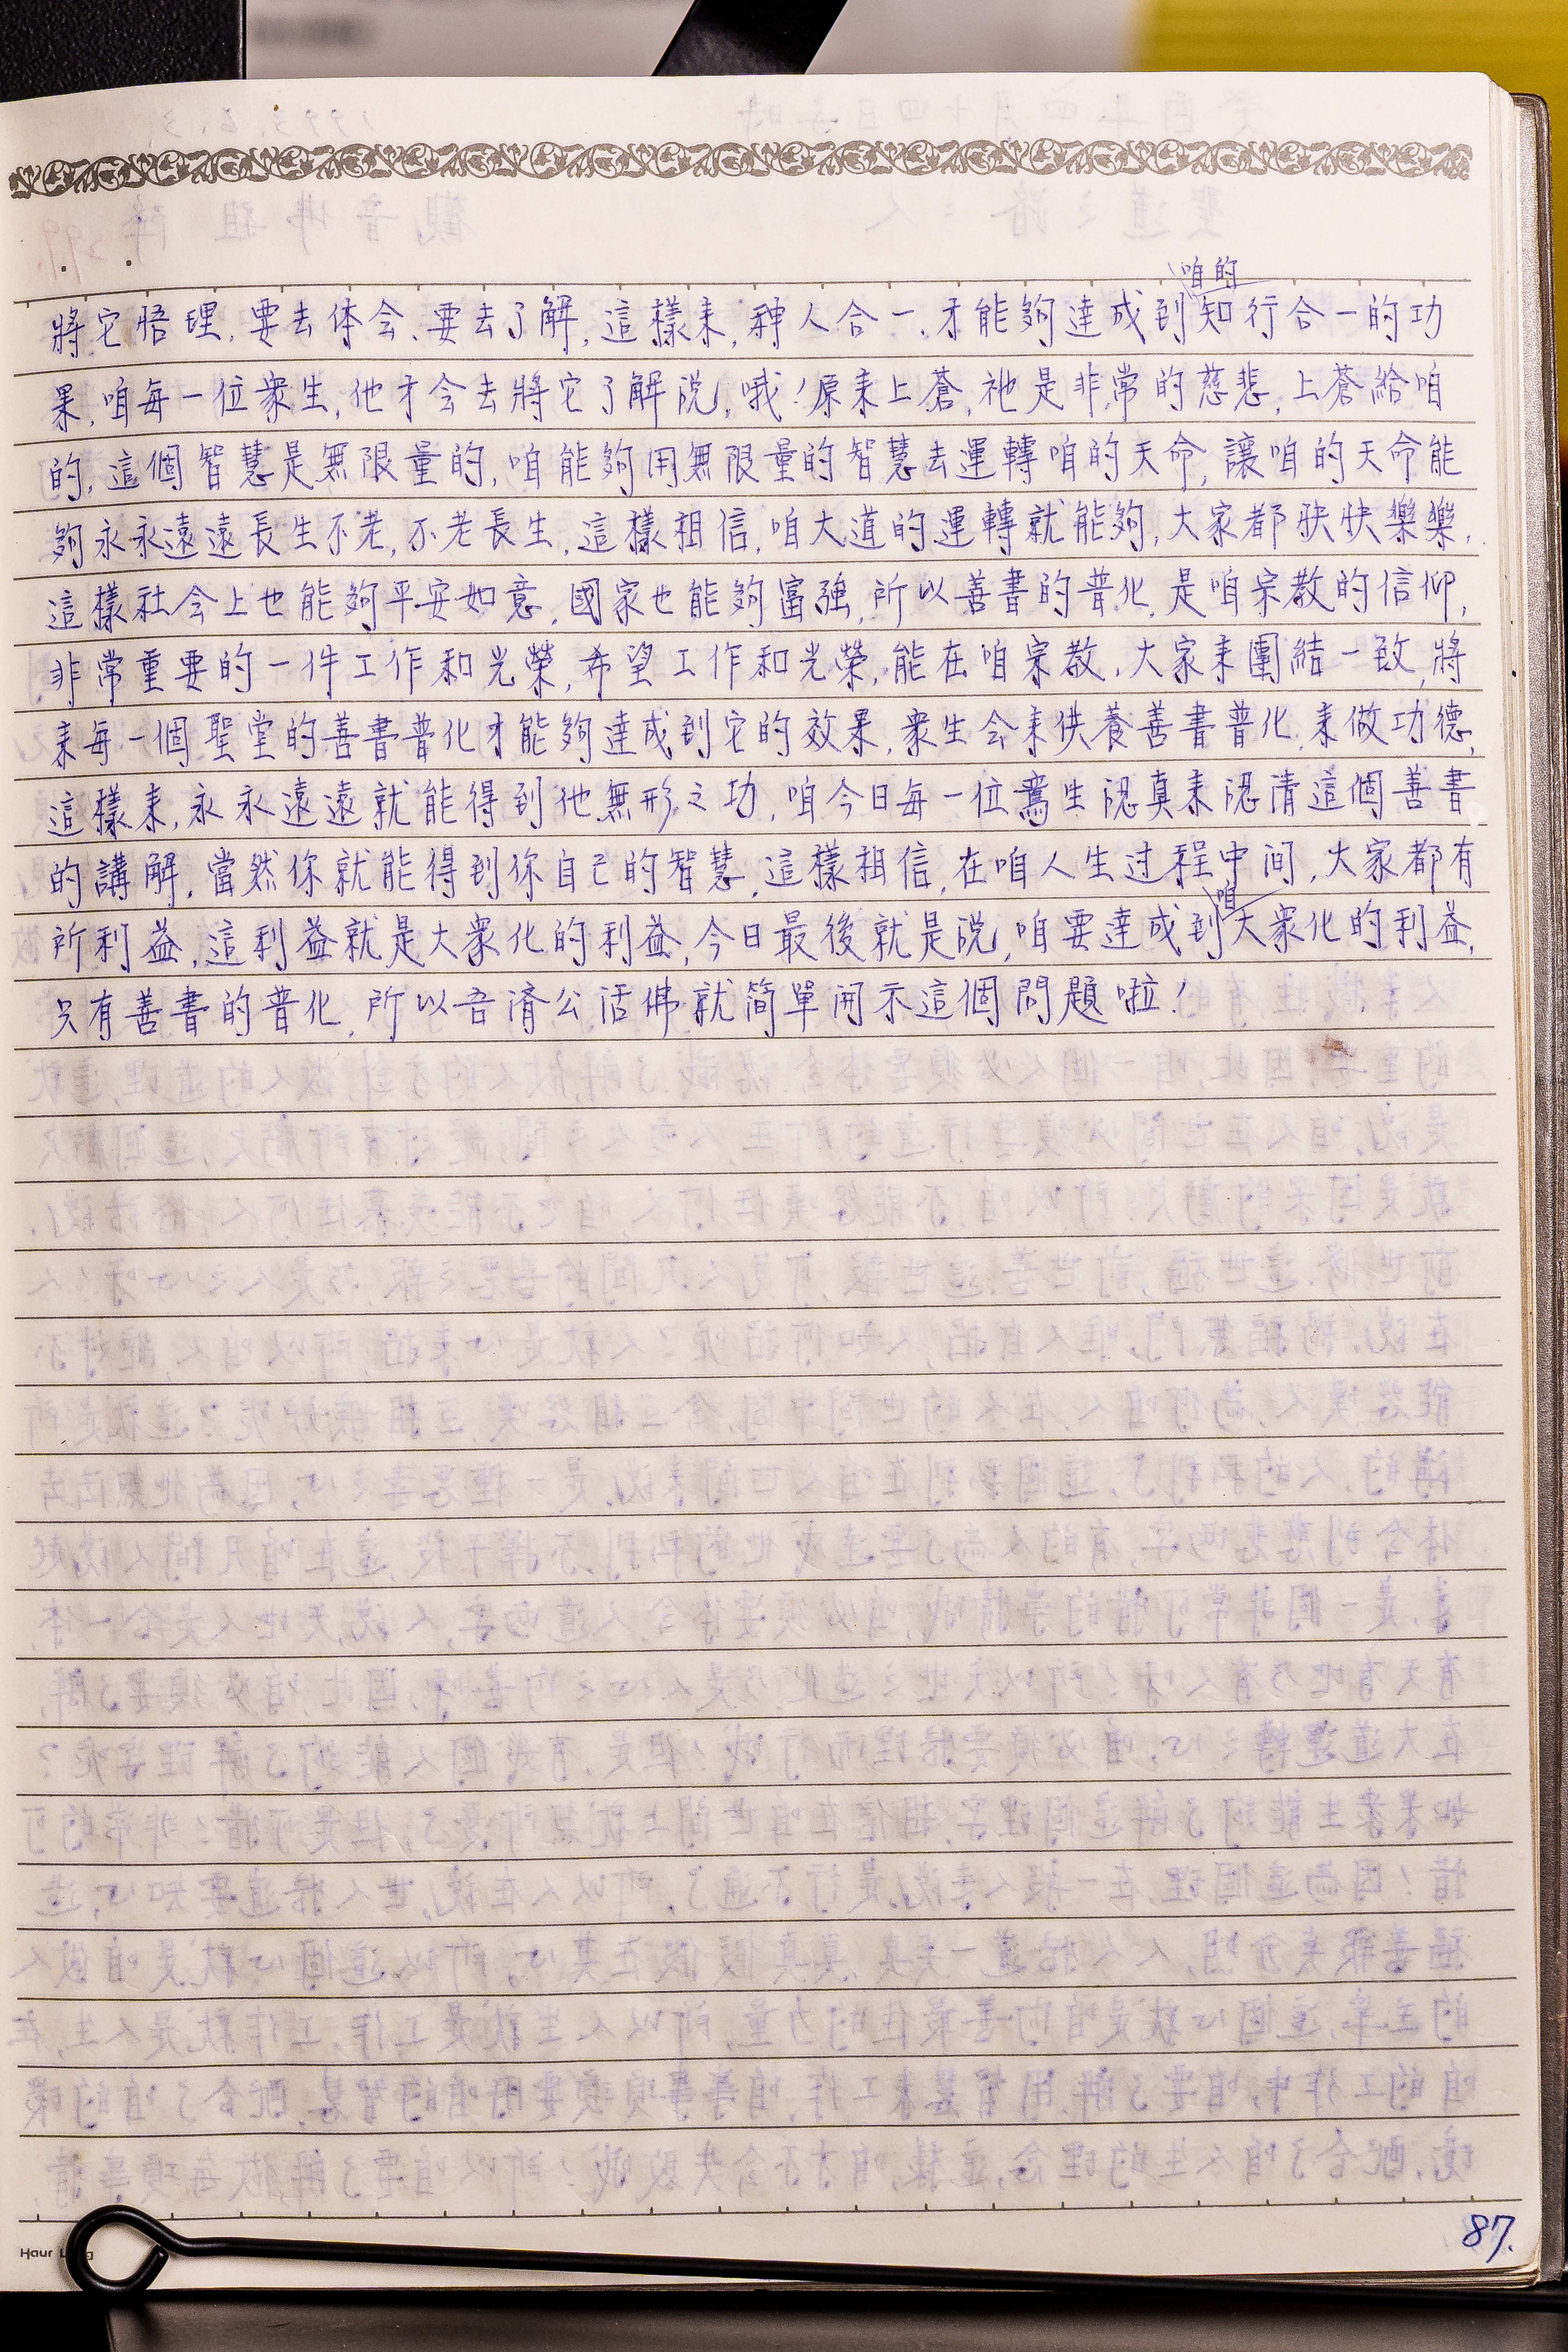 咱的
將它悟理,要去体会、要去了解,這樣耒,神人合一,才能夠達成到知行合一的功
果,咱每一位衆生,他才会去將它了解説,哦!原耒上蒼,祂是非常的慈悲,上蒼給咱
的,這個智慧是無限量的,咱能夠用無限量的智慧去運轉咱的天命,讓咱的天命能
夠永永遠遠長生不老,不老長生,這樣相信,咱大道的運轉就能夠,大家都快快樂樂,
這樣社会上也能夠平安如意,國家也能夠富強,所以善書的普化,是咱宗教的信仰,
非常重要的一件工作和光榮,希望工作和光榮,能在咱宗教,大家耒團結一致,將
耒每一個聖堂的善書普化才能夠達成到它的效果,衆生会耒供養善書普化,耒做功德,
這樣耒,永永遠遠就能得到他無形之功,咱今日每一位鸞生認真耒認清這個善書
的講解,當然你就能得到你自己的智慧,這樣相信,在咱人生过程中间,大家都有
咱
所利益,這利益就是大衆化的利益,今日最後就是説,咱要達成到大衆化的利益,
只有善書的普化,所以吾濟公活佛就简單開示這個問題啦!
87.